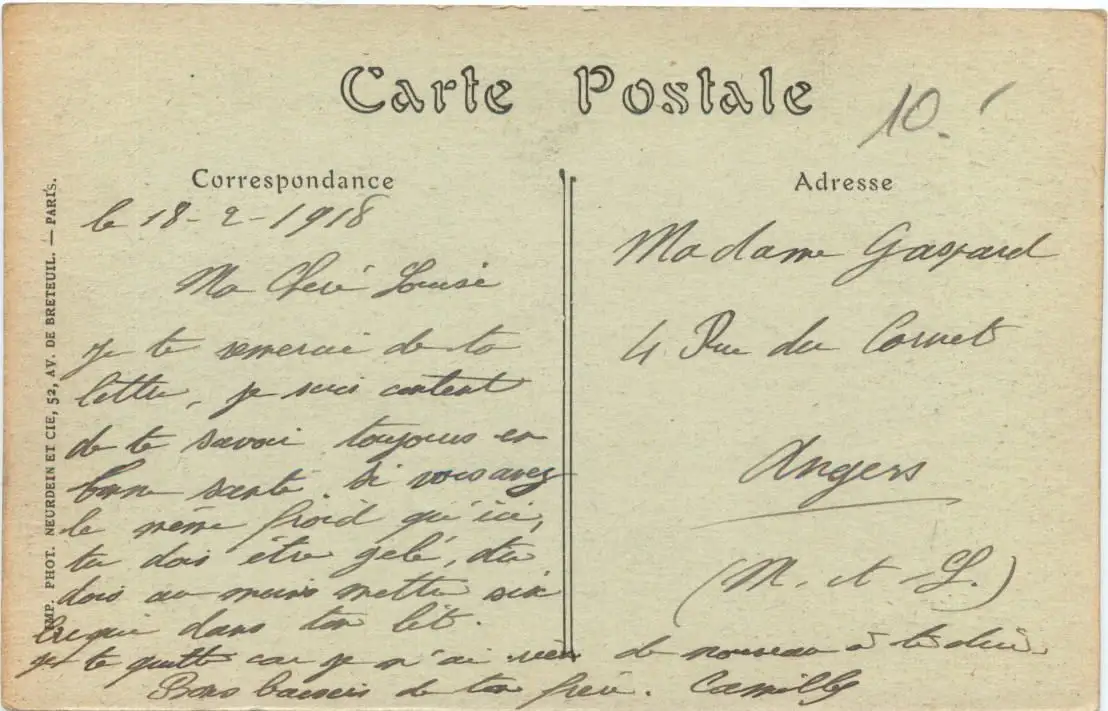 Carte Postale
10.
Correspondance
Adresse
IMP. PHOT. NEURDEIN ET CIE, 52, AV. DE BRETEUIL. — PARIS.
le 18-2-1918
Ma Chère Louise
je te remercie de ta
lettre, je suis content
de te savoir toujours en
bonne santé. Si vous avez
le même froid qu'ici,
tu dois être gelé, tu
dois au moins mettre six
dans ton lit.
je te quitte car je n'ai rien de nouveau à te dire.
Bons baisers de ton frère. Camille
Madame Gaspard
4 Rue du Cornet
Angers
(M. et L.)